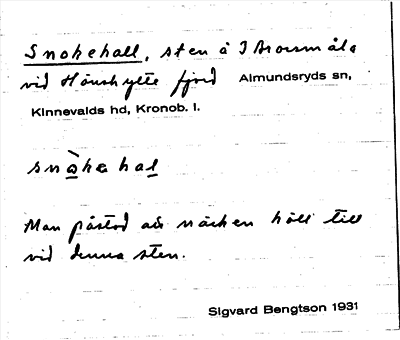 Snokehall, sten å I Brorsmåla
vid Hönshylte fjord Almundsryds sn,
Kinnevalds hd, Kronob. l.
snòkehal
Man påstod att näcken höll till
vid denna sten.
Sigvard Bengtson 1931